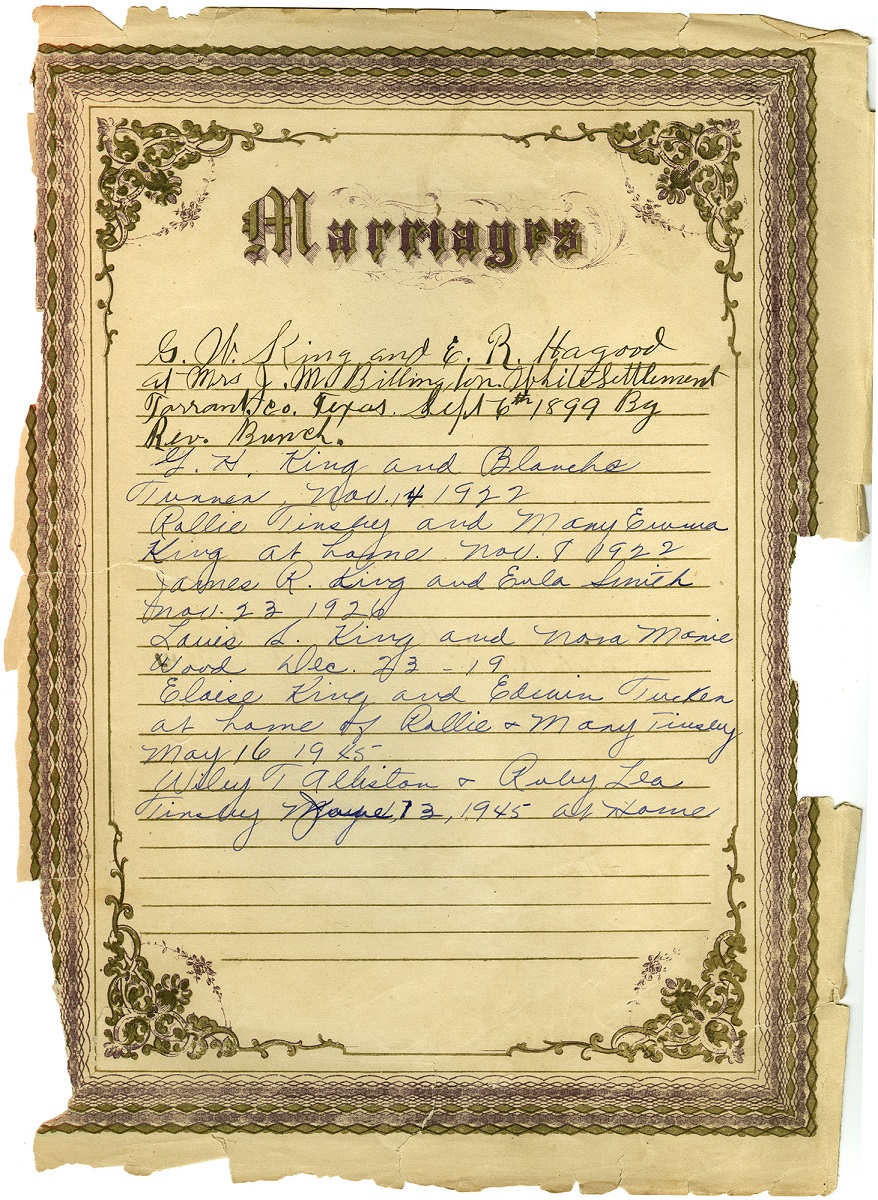 Marriages
G. W. King and E. R. Hagood
at Mrs J. M. Billington. White Settlement
Tarrant, co. Texas. Sept 6th 1899 By
Rev. Bunch.
G. H. King and Blanche
Turner, Nov. 14 1922
Rollie Tinsley and Mary Emma
King at home Nov. 8 1922
James R. King and Eula Smith
Nov. 23 1926
Louis S. King and Nora Marie
Wood Dec. 23 - 19
Eloise King and Edwin Tucker
at home of Rollie & Mary Tinsley
May 16 1945
Wiley T Alliston & Ruby Lea
Tinsley 13, 1945 at Home